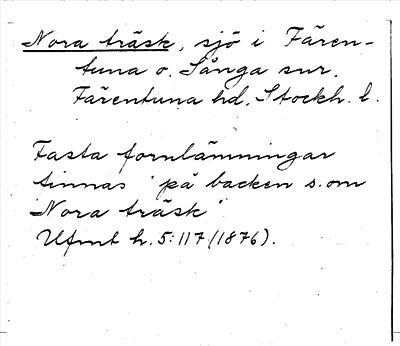 Nora träsk, sjö i Fären-
tuna o. Sånga snr.
Färentuna hd, Stockh. l.
Fasta fornlämningar
finnas "på backen s. om
Nora träsk"
Ufmt h. 5:117 (1876).